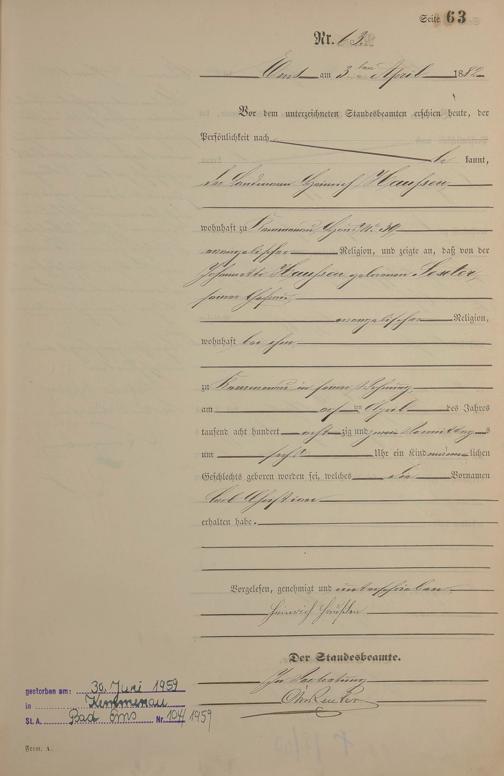 Seite 63
Nr. 63
Ems am 3ten April 1882
Vor dem unterzeichneten Standesbeamten erschien heute, der
Persönlichkeit nach be kannt,
der Landmann Heinrich
wohnhaft zu Kemmenau Haus Nr. 39
evangelischer Religion, und zeigte an, daß von der
geborenen
seiner Ehefrau
evangelischer Religion,
wohnhaft bei ihm
zu Kemmenau in seiner Wohnung
am ersten April des Jahres
tausend acht hundert achtzig und zwei Vormittags
um sechs Uhr ein Kind männlichen
Geschlechts geboren worden sei, welches die Vornamen
Carl Christian
erhalten habe.
Vorgelesen, genehmigt und unterschrieben
Heinrich
Der Standesbeamte.
In Vertretung
gestorben am: 30. Juni 1959
in Kemmenau
St. A. Bad Ems Nr. 104/1959
Form. A.